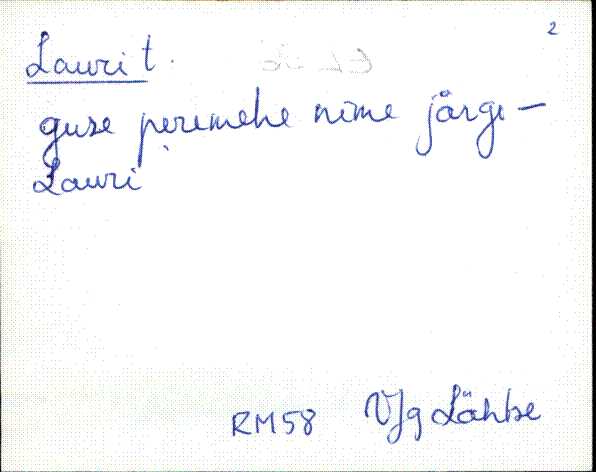 2
Lauri t.
peremehe nime järgi –
Lauri
RM58 VJg Lähtse